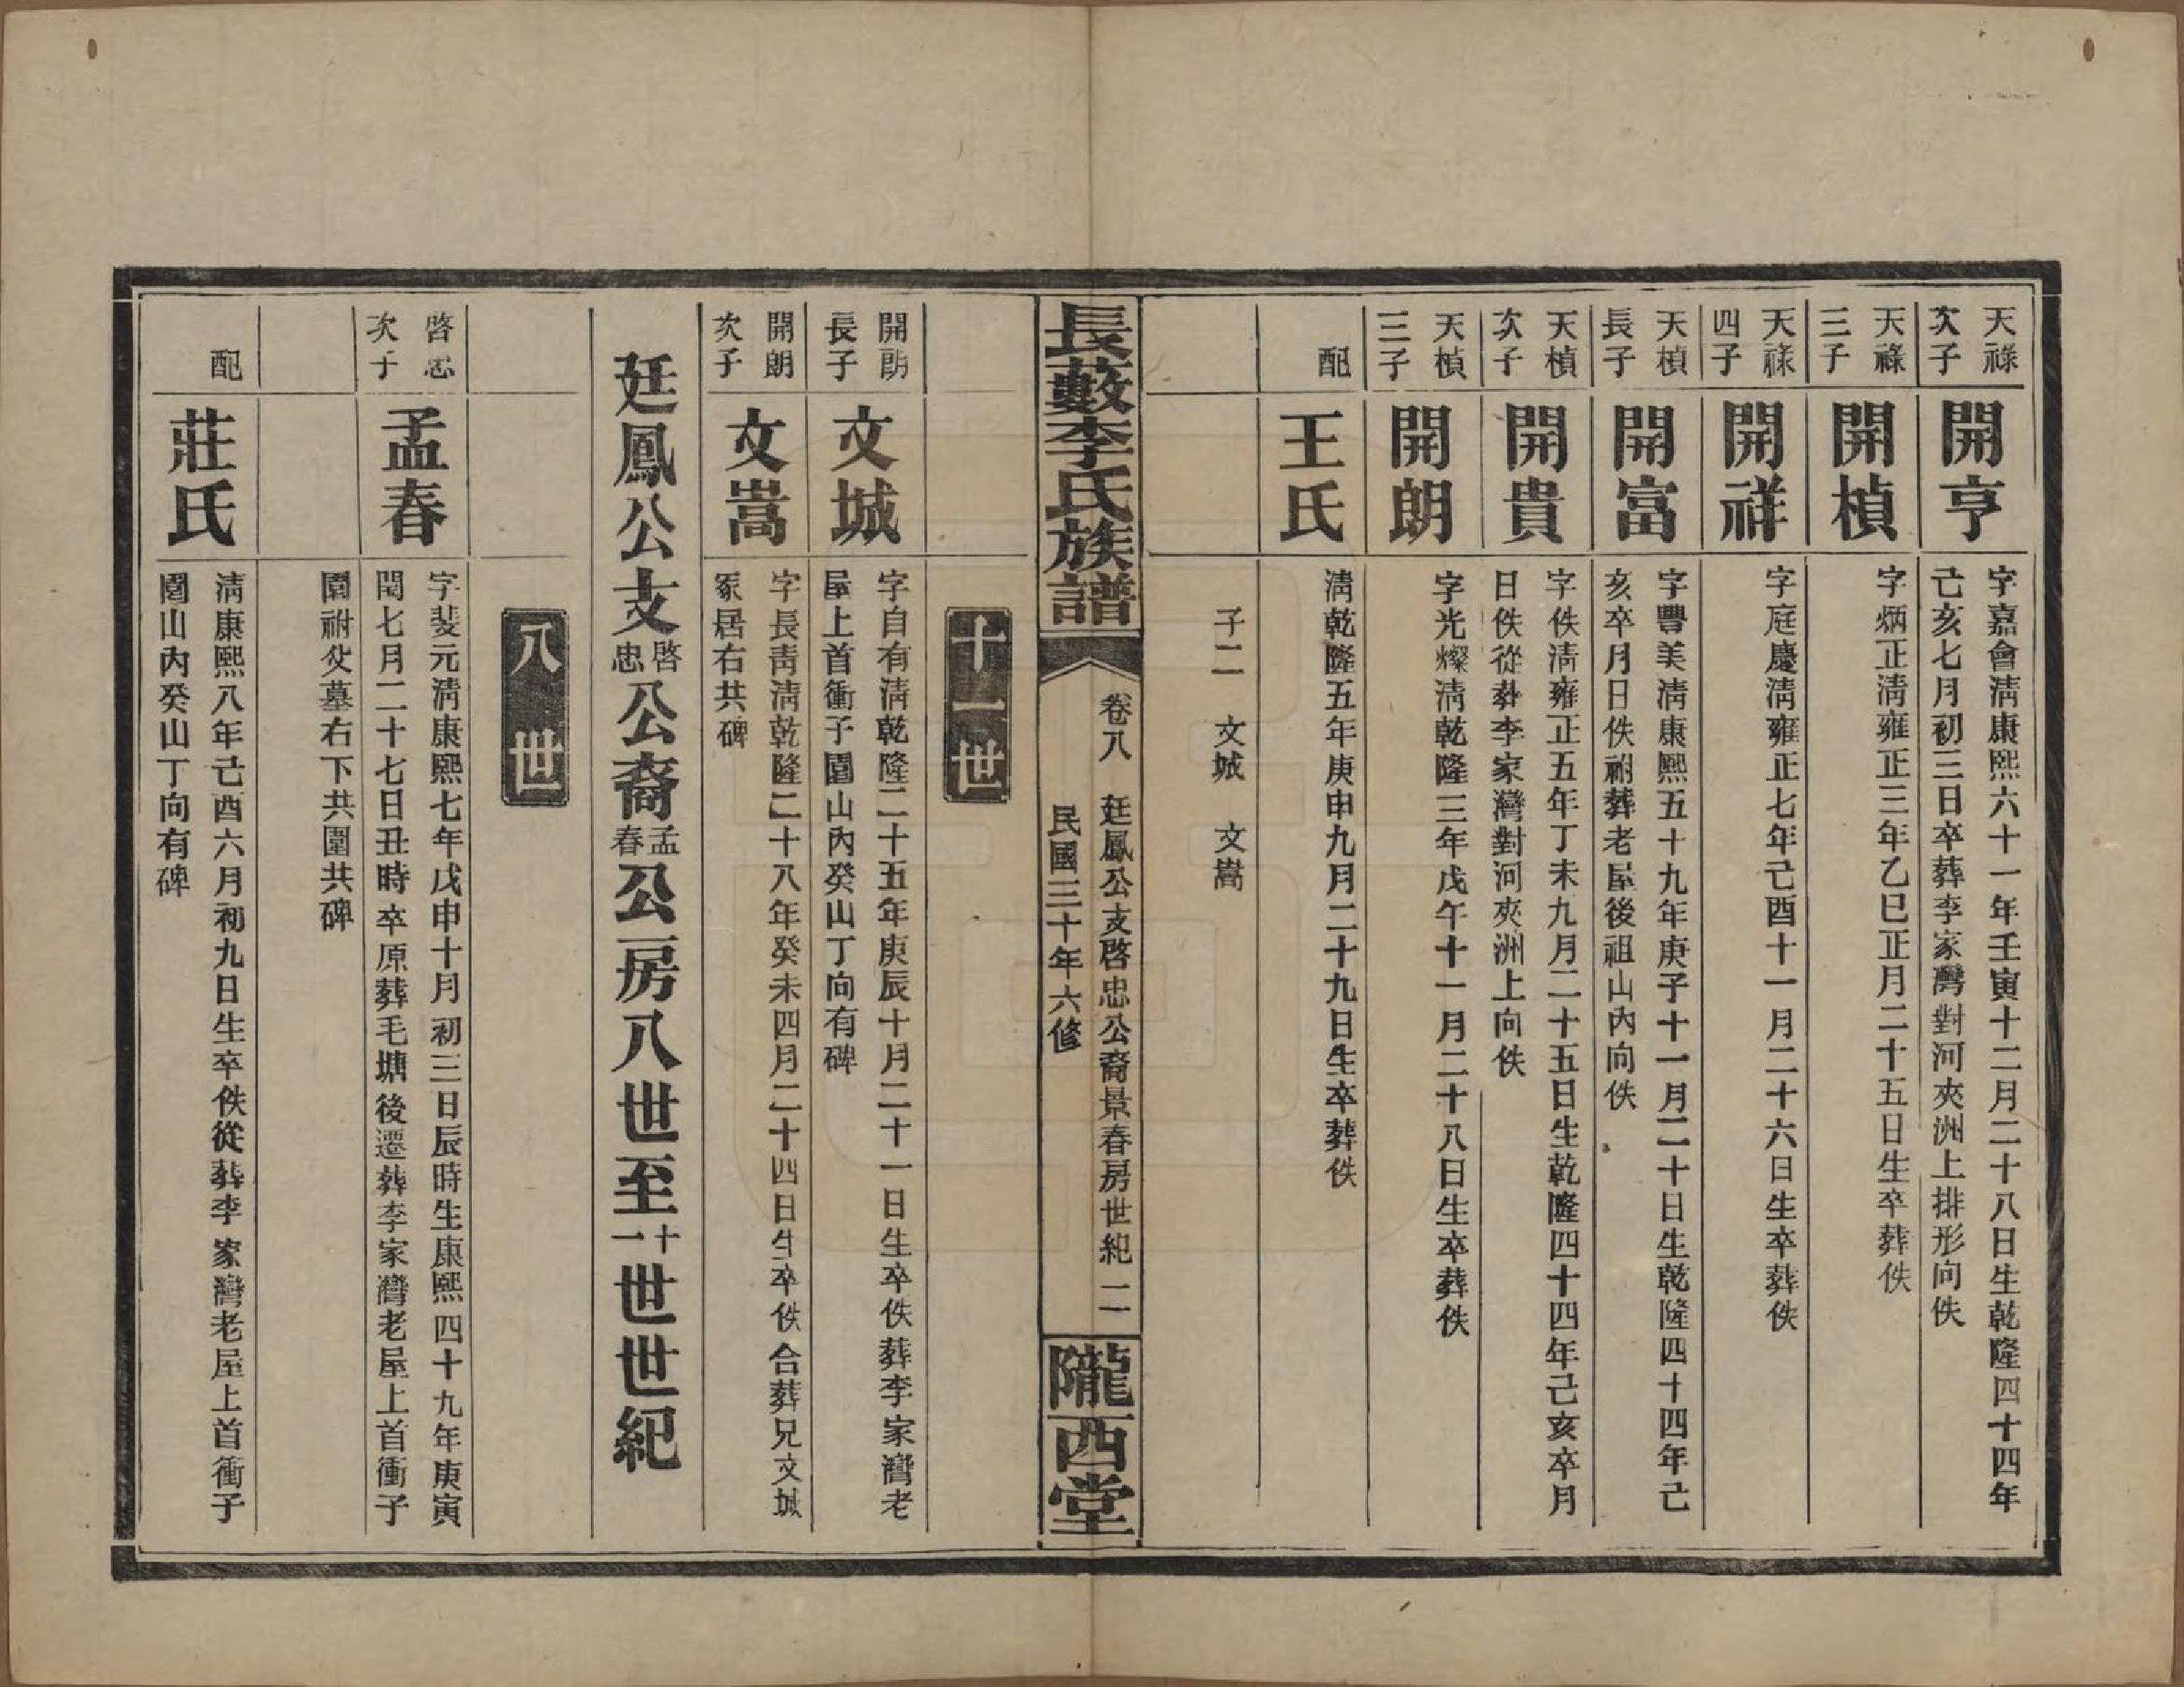 天祿次子
開亨
字嘉會淸康熙六十一年壬寅十二月二十八日生乾隆四十四年
己亥七月初三日卒葬李家灣對河夾洲上排形向佚
天祿三子
開楨
字炳正淸雍正三年乙巳正月二十五日生卒葬佚
天祿四子
開祥
字庭慶淸雍正七年己酉十一月二十六日生卒葬佚
天楨長子
開富
字豐美淸康熙五十九年庚子十一月二十日生乾隆四十四年己
亥卒月日佚祔葬老屋後祖山內向佚
天楨次子
開貴
字佚淸雍正五年丁未九月二十五日生乾隆四十四年己亥卒月
日佚從葬李家灣對河夾洲上向佚
天楨三子
開朗
字光燦淸乾隆三年戊午十一月二十八日生卒葬佚
配
王氏
淸乾隆五年庚申九月二十九日生卒葬佚
子二 文城 文嵩
長藪李氏族譜
卷八 廷鳳公支啓忠公裔景春房世紀 二
民國三十年六修
隴西堂
十一世
開朗長子
文城
字自有淸乾隆二十五年庚辰十月二十一日生卒佚葬李家灣老
屋上首衝子園山內癸山丁向有碑
開朗次子
文嵩
字長靑淸乾隆二十八年癸未四月二十四日生卒佚合葬兄文城
冢居右共碑
廷鳳公支啓忠公裔孟春公房八世至十一世世紀
八世
啓忠次子
孟春
字斐元淸康熙七年戊申十月初三日辰時生康熙四十九年庚寅
閏七月二十七日丑時卒原葬毛塘後遷葬李家灣老屋上首衝子
園祔父墓右下共圍共碑
配
莊氏
淸康熙八年己酉六月初九日生卒佚從葬李家灣老屋上首衝子
園山內癸山丁向有碑